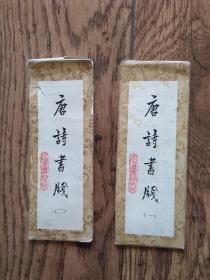 唐詩書牋
（二）
唐詩書牋
（一）